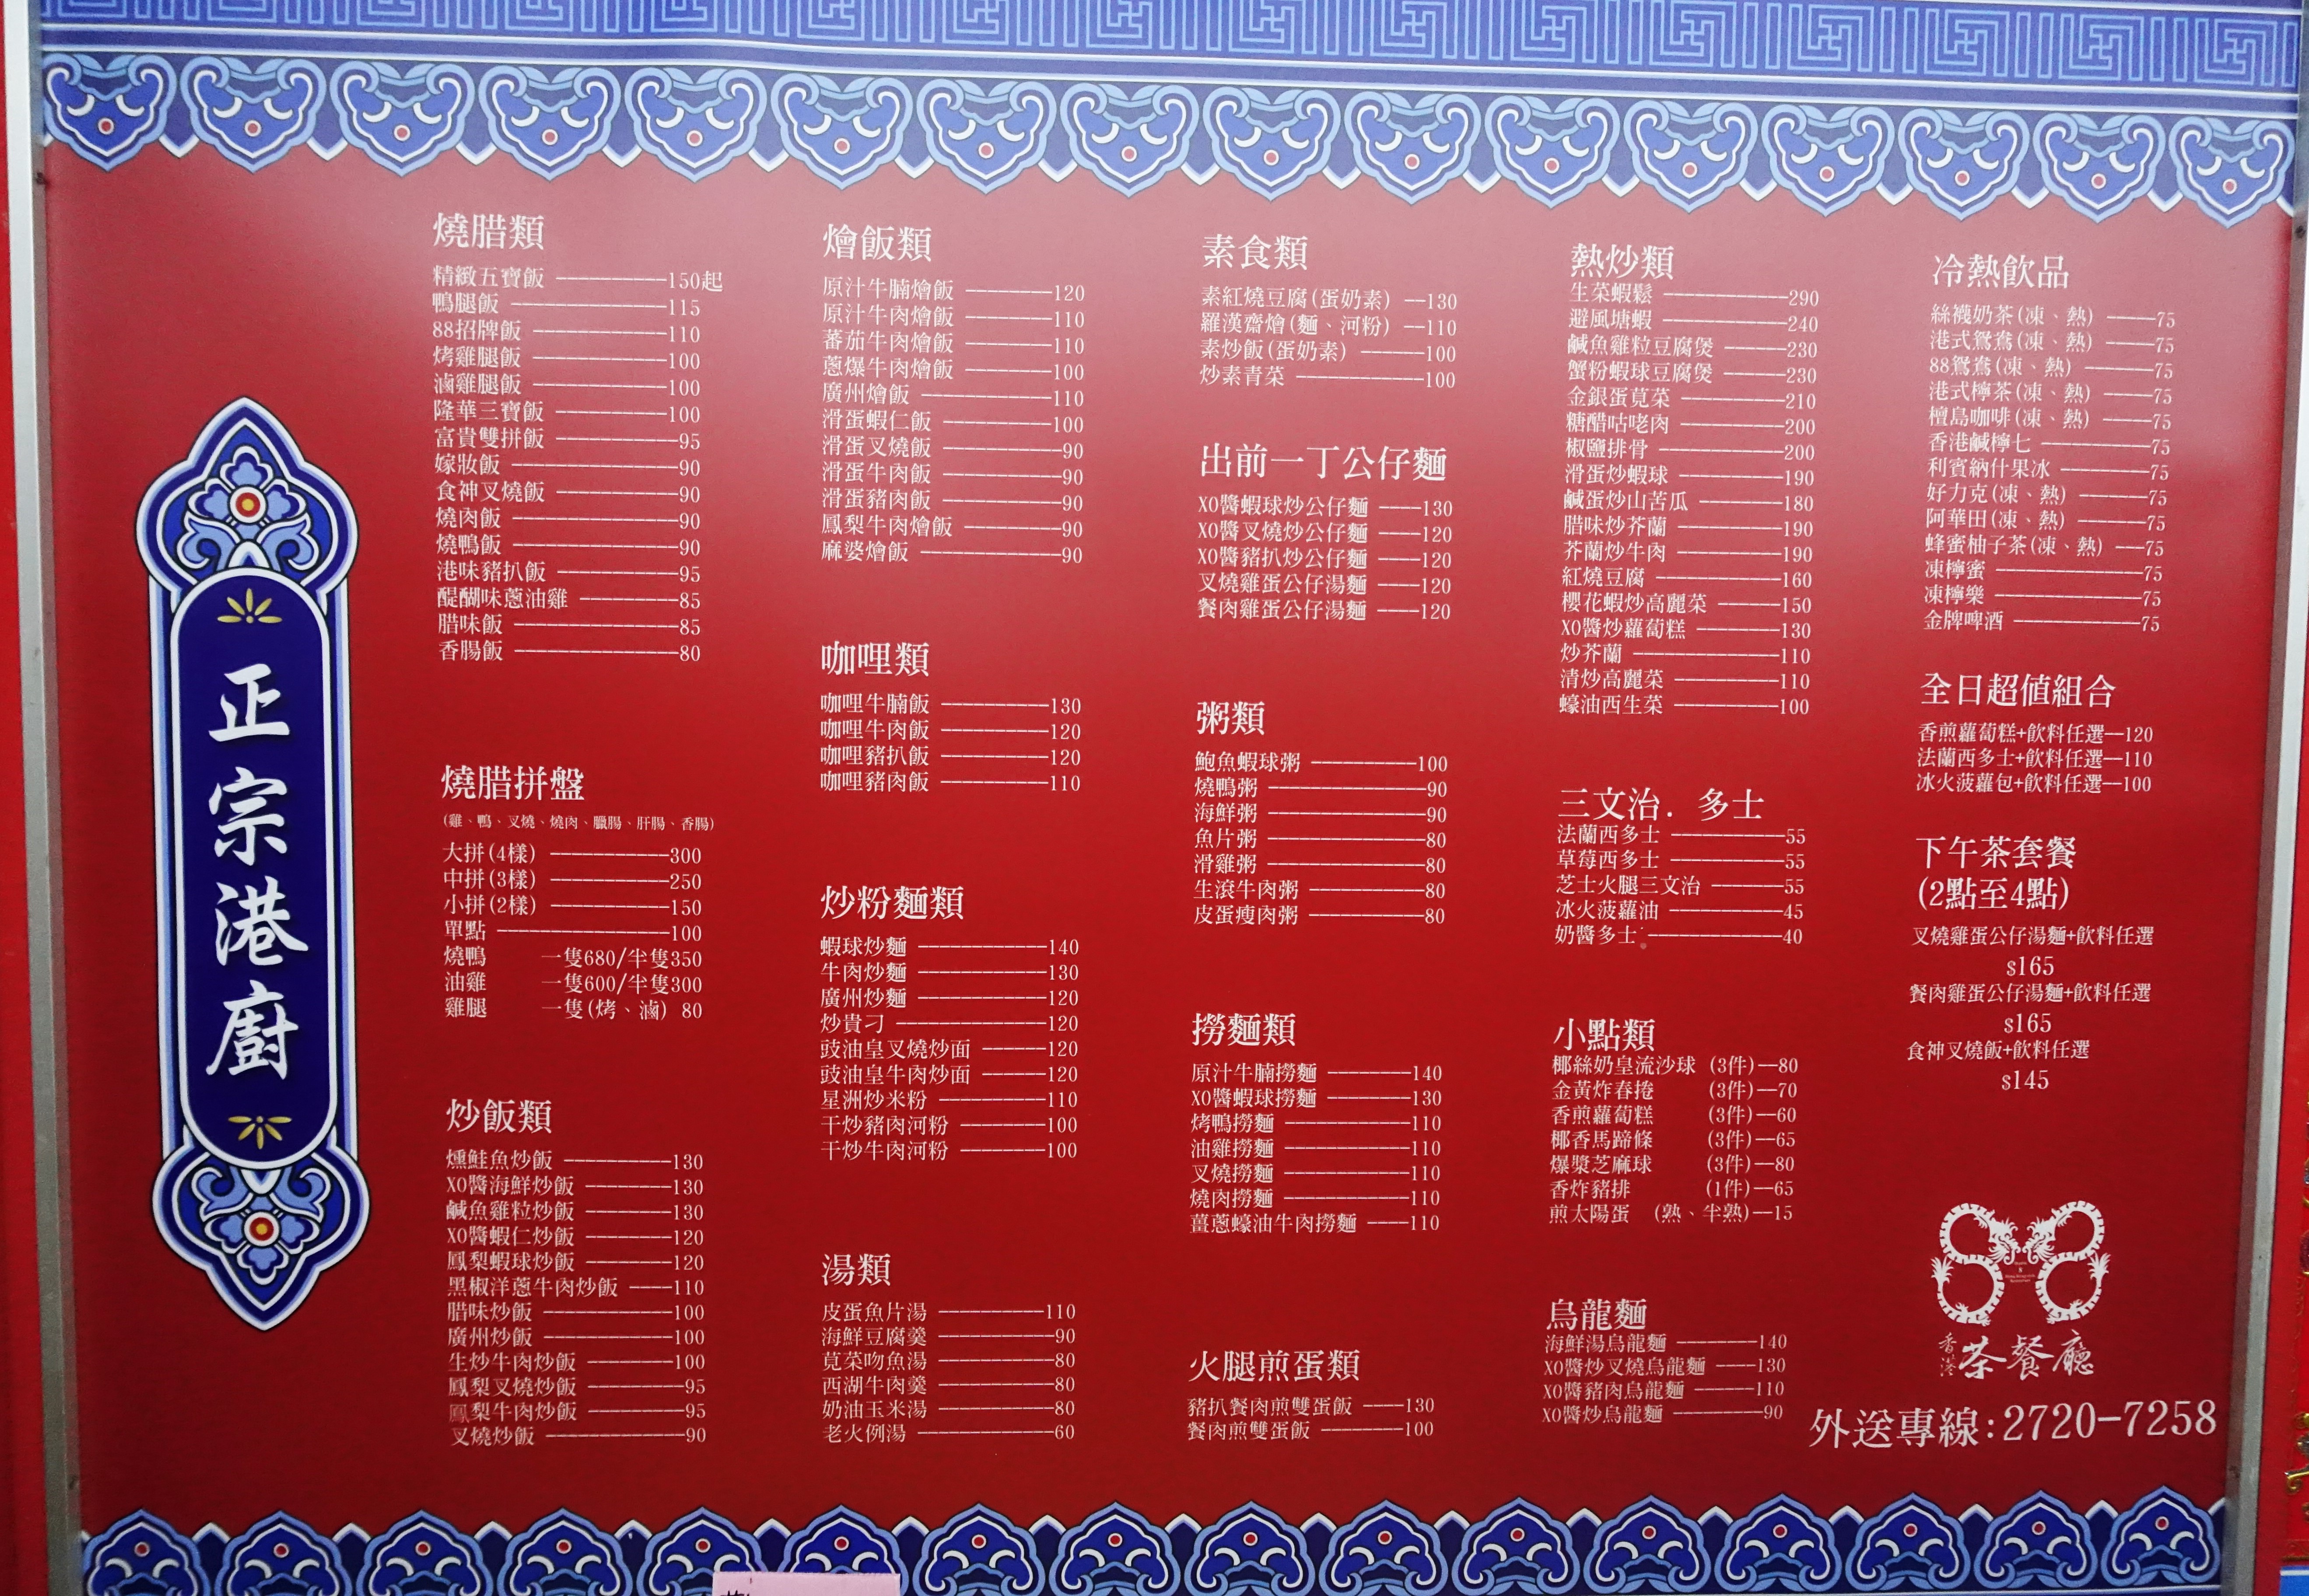 正宗港廚
燒腊類
精緻五寶飯 150起
鴨腿飯 115
88招牌飯 110
烤雞腿飯 100
滷雞腿飯 100
隆華三寶飯 100
富貴雙拼飯 95
嫁妝飯 90
食神叉燒飯 90
燒肉飯 90
燒鴨飯 90
港味豬扒飯 95
醍醐味蔥油雞 85
腊味飯 85
香腸飯 80
燒腊拼盤
(雞、鴨、叉燒、燒肉、臘腸、肝腸、香腸)
大拼(4樣) 300
中拼(3樣) 250
小拼(2樣) 150
單點 100
燒鴨 一隻680/半隻350
油雞 一隻600/半隻300
雞腿 一隻(烤、滷) 80
炒飯類
燻鮭魚炒飯 130
XO醬海鮮炒飯 130
鹹魚雞粒炒飯 130
XO醬蝦仁炒飯 120
鳳梨蝦球炒飯 120
黑椒洋蔥牛肉炒飯 110
腊味炒飯 100
廣州炒飯 100
生炒牛肉炒飯 100
鳳梨叉燒炒飯 95
鳳梨牛肉炒飯 95
叉燒炒飯 90
燴飯類
原汁牛腩燴飯 120
原汁牛肉燴飯 110
蕃茄牛肉燴飯 110
蔥爆牛肉燴飯 100
廣州燴飯 110
滑蛋蝦仁飯 100
滑蛋叉燒飯 90
滑蛋牛肉飯 90
滑蛋豬肉飯 90
鳳梨牛肉燴飯 90
麻婆燴飯 90
咖哩類
咖哩牛腩飯 130
咖哩牛肉飯 120
咖哩豬扒飯 120
咖哩豬肉飯 110
炒粉麵類
蝦球炒麵 140
牛肉炒麵 130
廣州炒麵 120
炒貴刁 120
豉油皇叉燒炒面 120
豉油皇牛肉炒面 120
星洲炒米粉 110
干炒豬肉河粉 100
干炒牛肉河粉 100
湯類
皮蛋魚片湯 110
海鮮豆腐羹 90
莧菜吻魚湯 80
西湖牛肉羹 80
奶油玉米湯 80
老火例湯 60
素食類
素紅燒豆腐(蛋奶素) 130
羅漢齋燴(麵、河粉) 110
素炒飯(蛋奶素) 100
炒素青菜 100
出前一丁公仔麵
XO醬蝦球炒公仔麵 130
XO醬叉燒炒公仔麵 120
XO醬豬扒炒公仔麵 120
叉燒雞蛋公仔湯麵 120
餐肉雞蛋公仔湯麵 120
粥類
鮑魚蝦球粥 100
燒鴨粥 90
海鮮粥 90
魚片粥 80
滑雞粥 80
生滾牛肉粥 80
皮蛋瘦肉粥 80
撈麵類
原汁牛腩撈麵 140
XO醬蝦球撈麵 130
烤鴨撈麵 110
油雞撈麵 110
叉燒撈麵 110
燒肉撈麵 110
薑蔥蠔油牛肉撈麵 110
火腿煎蛋類
豬扒餐肉煎雙蛋飯 130
餐肉煎雙蛋飯 100
熱炒類
生菜蝦鬆 290
避風塘蝦 240
鹹魚雞粒豆腐煲 230
蟹粉蝦球豆腐煲 230
金銀蛋莧菜 210
糖醋咕咾肉 200
椒鹽排骨 200
滑蛋炒蝦球 190
鹹蛋炒山苦瓜 180
腊味炒芥蘭 190
芥蘭炒牛肉 190
紅燒豆腐 160
櫻花蝦炒高麗菜 150
XO醬炒蘿蔔糕 130
炒芥蘭 110
清炒高麗菜 110
蠔油西生菜 100
三文治.多士
法蘭西多士 55
草莓西多士 55
芝士火腿三文治 55
冰火菠蘿油 45
奶醬多士 40
小點類
椰絲奶皇流沙球 (3件) 80
金黃炸春捲 (3件) 70
香煎蘿蔔糕 (3件) 60
椰香馬蹄條 (3件) 65
爆漿芝麻球 (3件) 80
香炸豬排 (1件) 65
煎太陽蛋 (熟、半熟) 15
烏龍麵
海鮮湯烏龍麵 140
XO醬炒叉燒烏龍麵 130
XO醬豬肉烏龍麵 110
XO醬炒烏龍麵 90
冷熱飲品
絲襪奶茶(凍、熱) 75
港式鴛鴦(凍、熱) 75
88鴛鴦(凍、熱) 75
港式檸茶(凍、熱) 75
檀島咖啡(凍、熱) 75
香港鹹檸七 75
利賓納什果冰 75
好力克(凍、熱) 75
阿華田(凍、熱) 75
蜂蜜柚子茶(凍、熱) 75
凍檸蜜 75
凍檸樂 75
金牌啤酒 75
全日超值組合
香煎蘿蔔糕+飲料任選 120
法蘭西多士+飲料任選 110
冰火菠蘿包+飲料任選 100
下午茶套餐
(2點至4點)
叉燒雞蛋公仔湯麵+飲料任選
$165
餐肉雞蛋公仔湯麵+飲料任選
$165
食神叉燒飯+飲料任選
$145
88
香港茶餐廳
外送專線:2720-7258